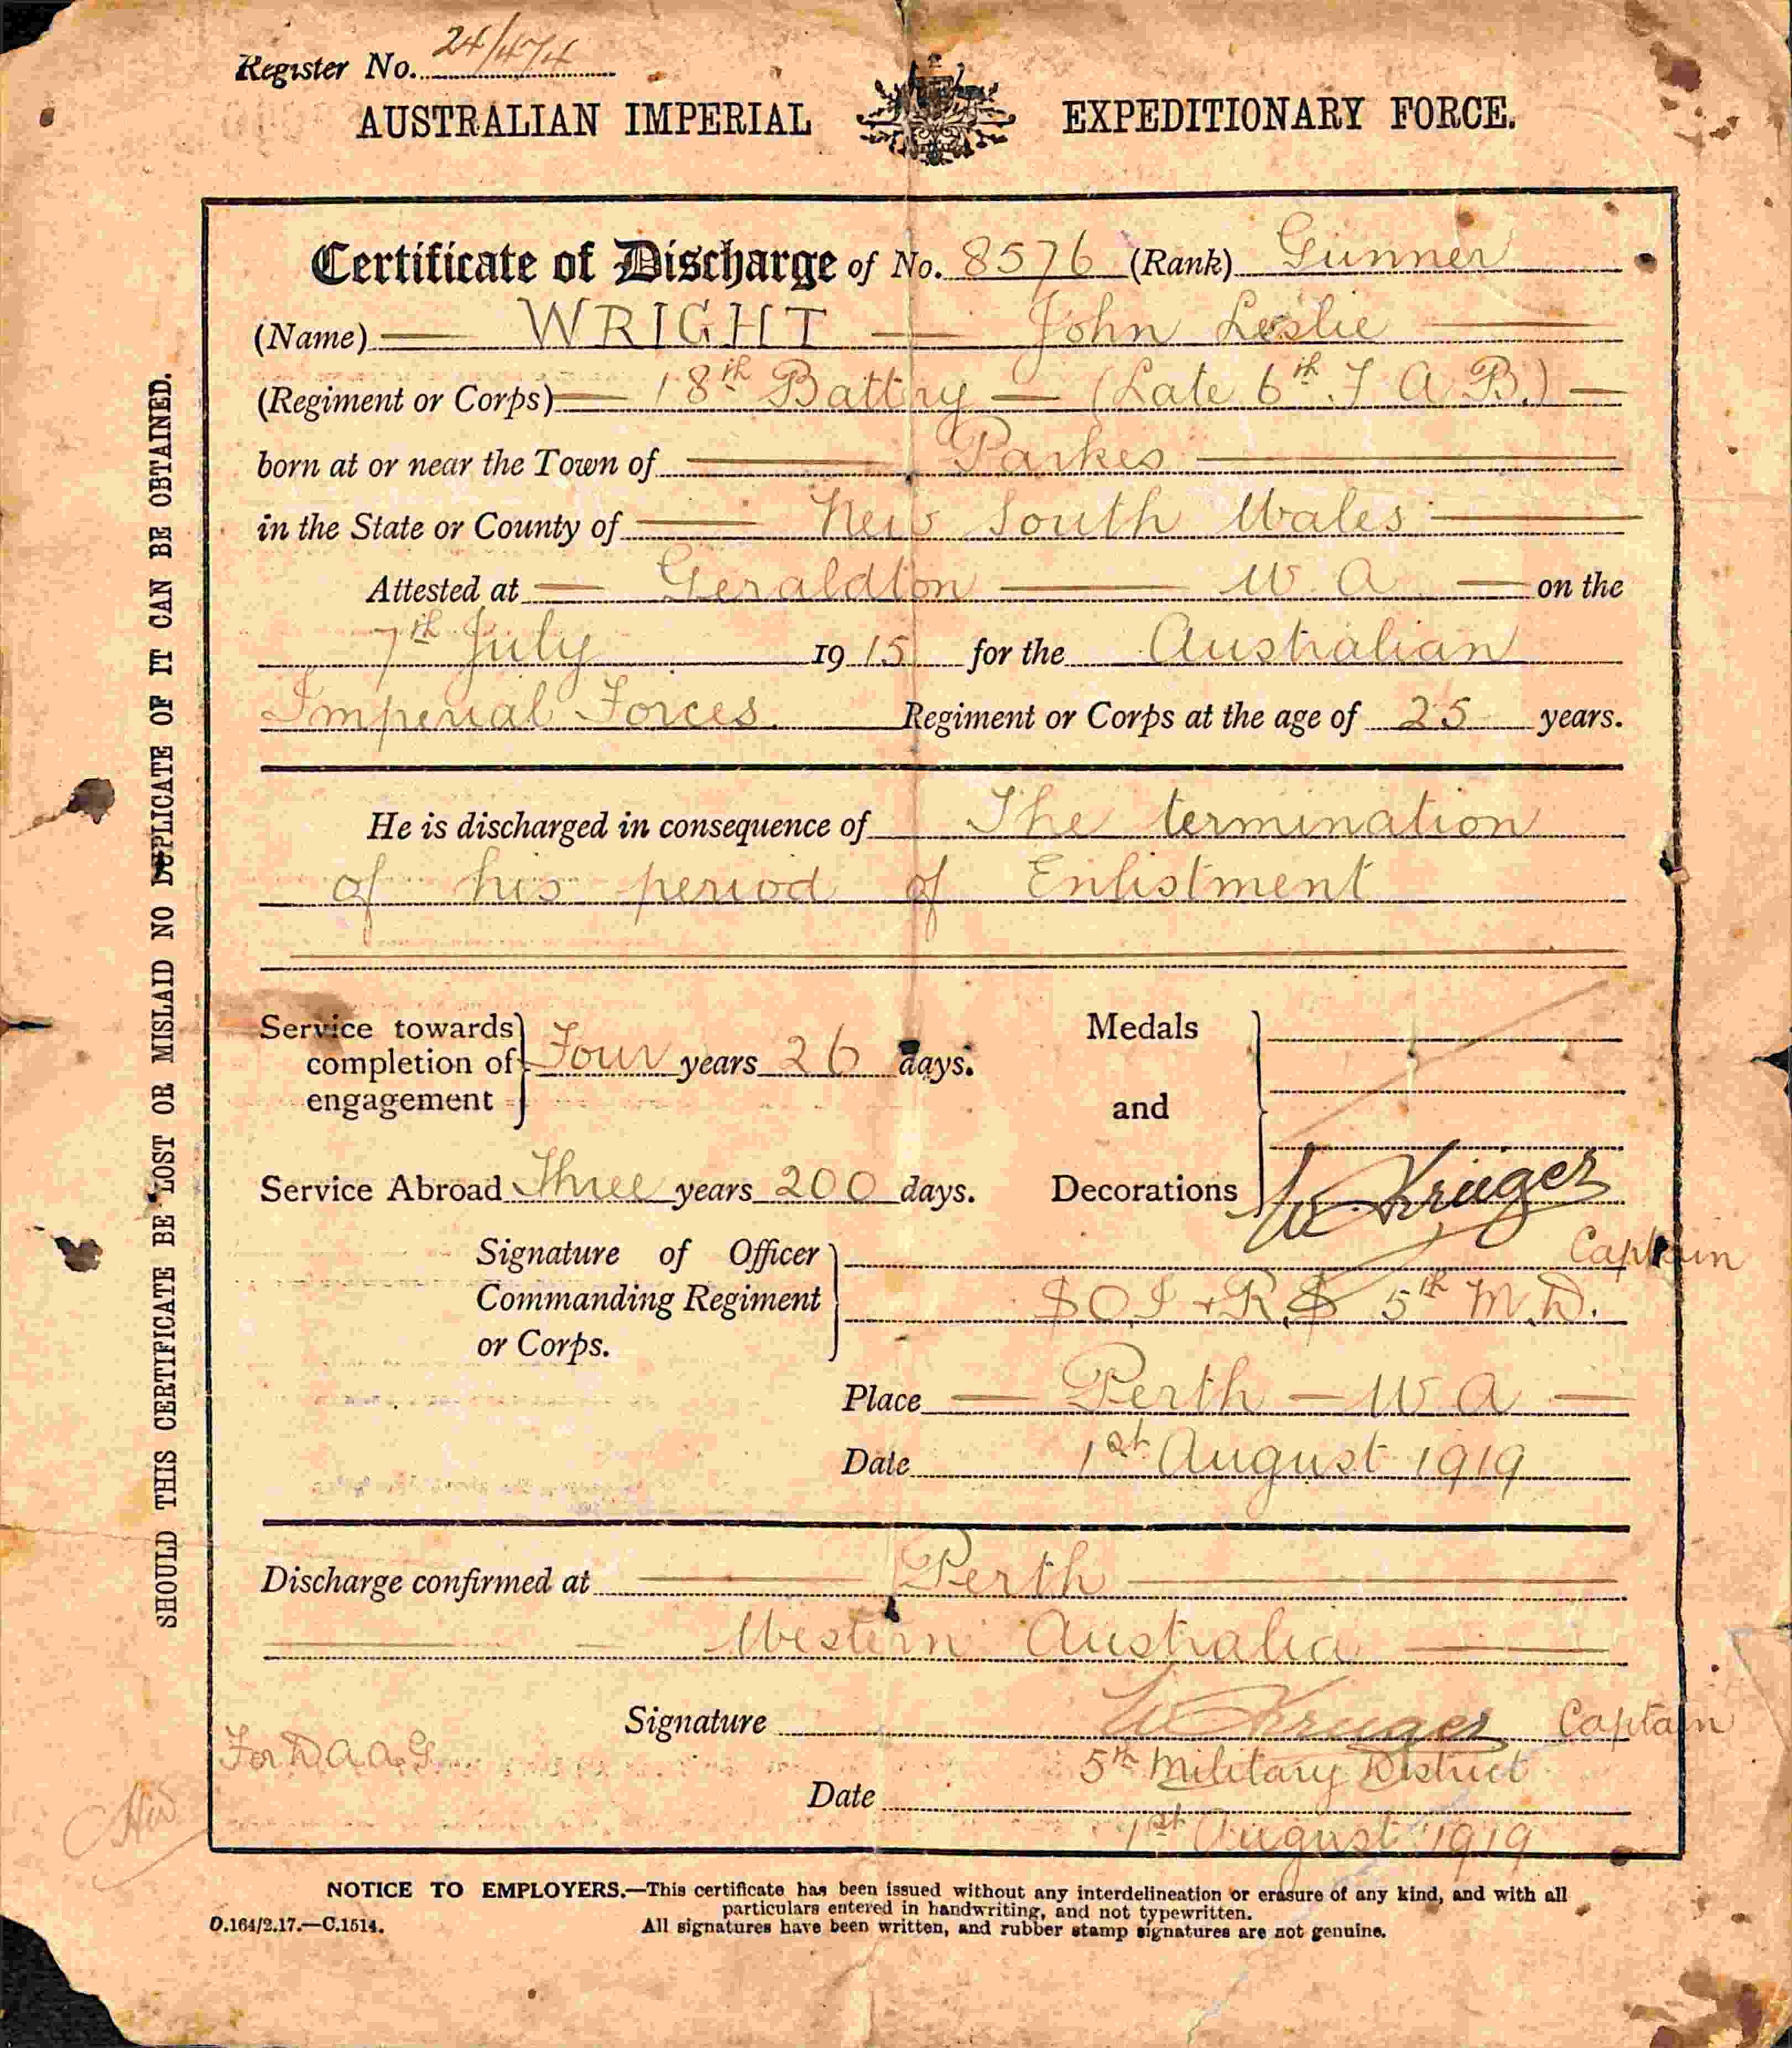 Register No. 24/474
AUSTRALIAN IMPERIAL EXPEDITIONARY FORCE.
Certificate of Discharge of No. 8576 (Rank) Gunner
(Name) WRIGHT — John Leslie
(Regiment or Corps) 18th Battry — (Late 6th F A B.)
born at or near the Town of Parkes
in the State or County of New South Wales
Attested at Geraldton — W A on the
7th July 1915 for the Australian
Imperial Forces. Regiment or Corps at the age of 25 years.
He is discharged in consequence of The termination
of his period of Enlistment
Service towards completion of engagement Four years 26 days.
Medals and Decorations
Service Abroad Three years 200 days.
W Kruger
Signature of Officer Captain
Commanding Regiment S O I & R.S 5th M.D.
or Corps.
Place Perth — W A
Date 1st August 1919
Discharge confirmed at Perth
Western Australia
Signature W Kruger Captain
For D.A.A.G. 5th Military District
Date
1st August 1919
NOTICE TO EMPLOYERS.—This certificate has been issued without any interdelineation or erasure of any kind, and with all
particulars entered in handwriting, and not typewritten.
D.164/2.17.—C.1514. All signatures have been written, and rubber stamp signatures are not genuine.
SHOULD THIS CERTIFICATE BE LOST OR MISLAID NO DUPLICATE OF IT CAN BE OBTAINED.